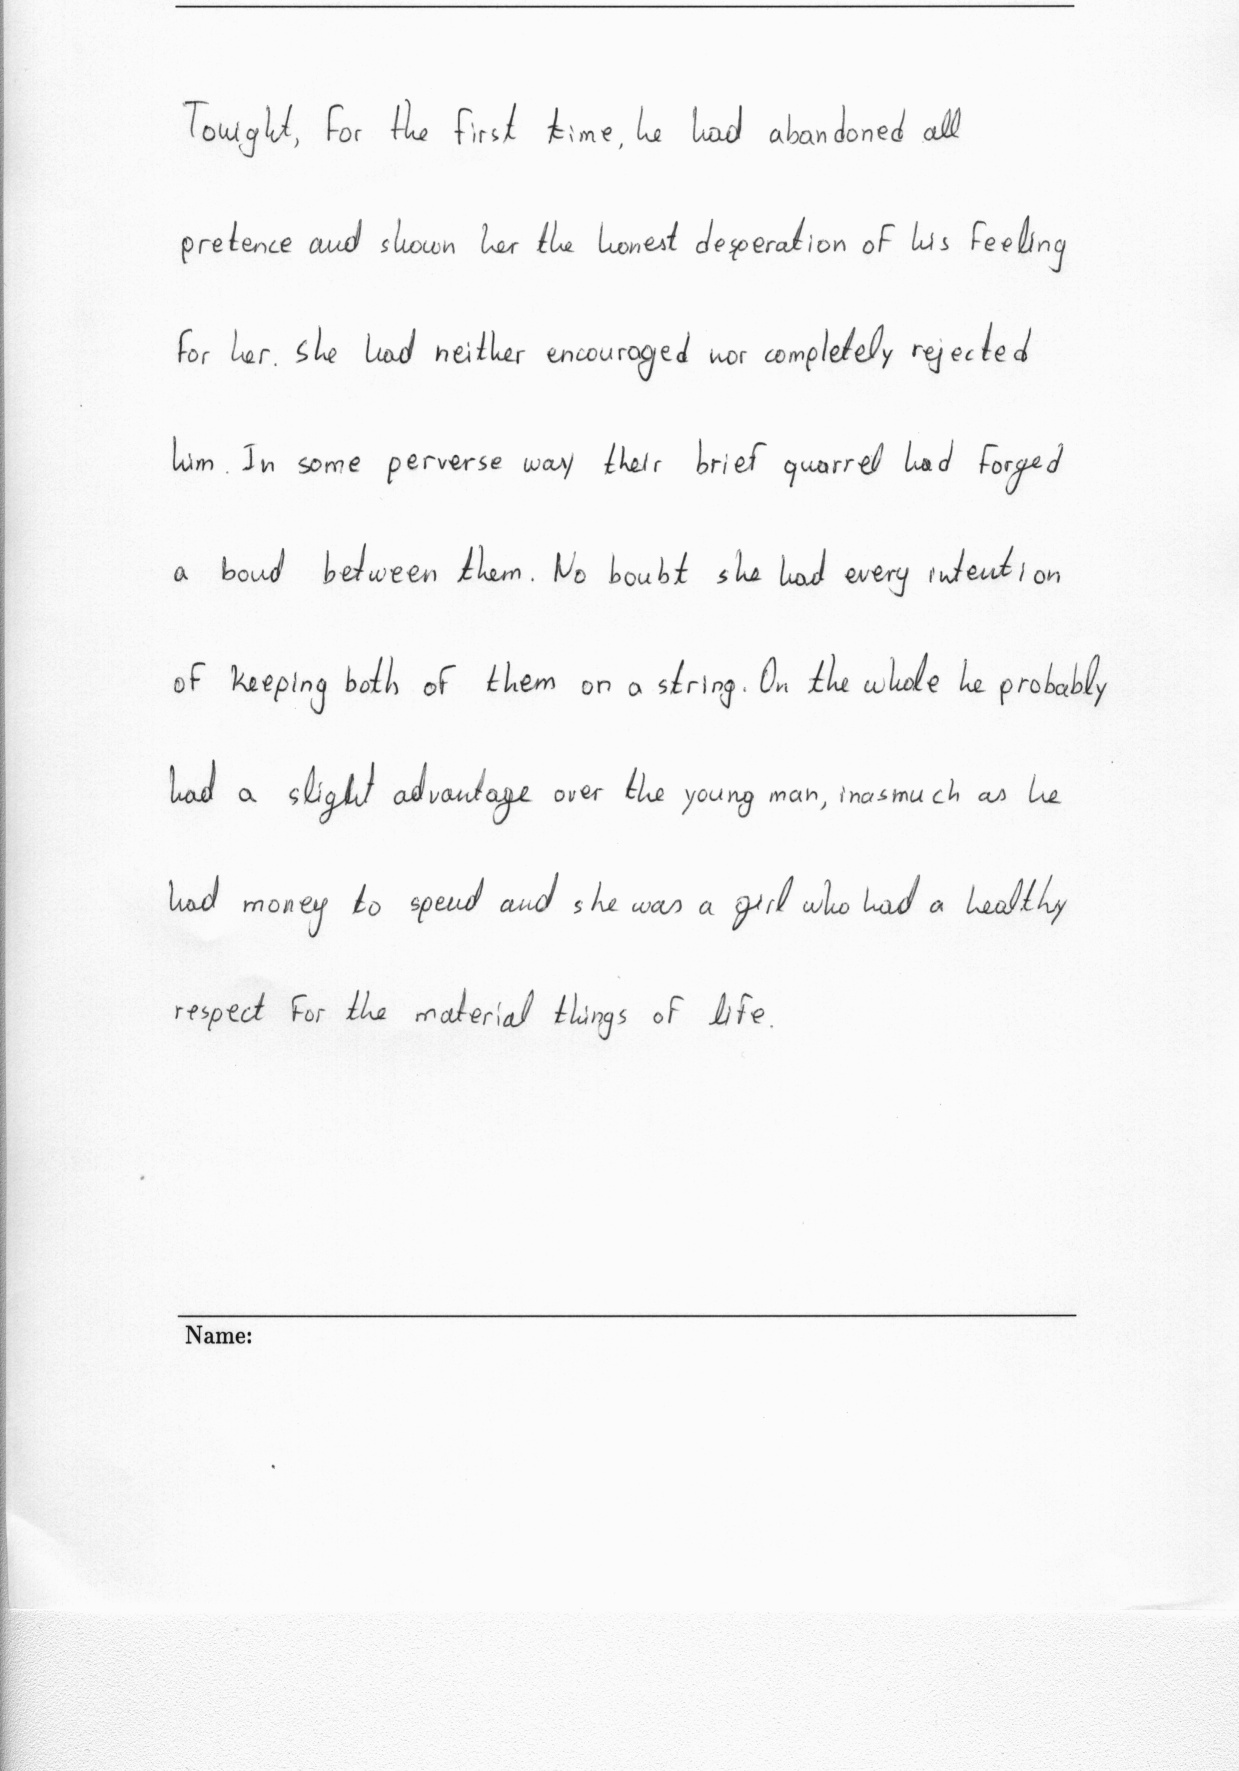 Tonight, for the first time, he had abandoned all
pretence and shown her the honest desperation of his feeling
for her. She had neither encouraged nor completely rejected
him. In some perverse way their brief quarrel had forged
a bond between them. No boubt she had every intention
of keeping both of them on a string. On the whole he probably
had a slight advantage over the young man, inasmuch as he
had money to spend and she was a girl who had a healthy
respect for the material things of life.
Name: